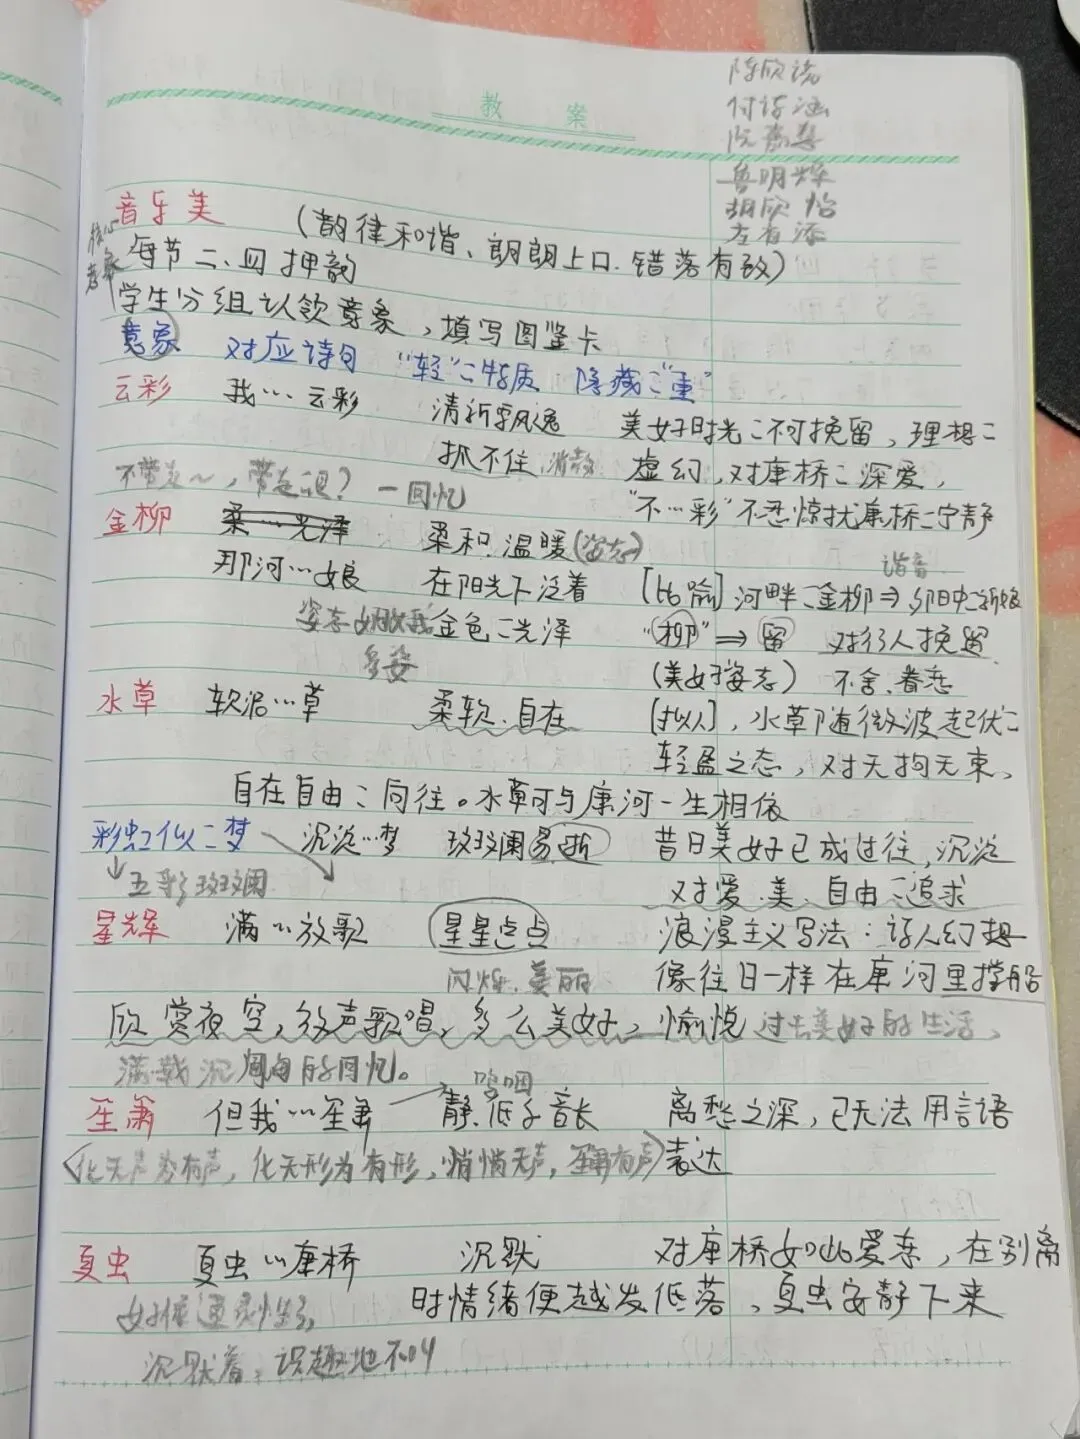 陈欣诺
付诗涵
教案
鲁明烨
胡欣怡
左右添
音乐美 (韵律和谐、朗朗上口.错落有致)
每节二、四押韵
学生分组认领意象，填写图鉴卡
意象 对应诗句 "轻"二特质 隐藏二"重"
云彩 我…云彩 清新飘逸 美好时光二不可挽留，理想二
抓不住.消散 虚幻，对康桥二深爱，
不带走～，带走 ？—回忆 "不…彩"不忍惊扰康桥二宁静
金柳 柔…光泽 柔和.温暖(姿态)
谐音
那河…娘 在阳光下泛着 [比喻]河畔二金柳⇒夕阳中二新娘
姿态 金色二光泽 "柳"⇒留 对行人挽留
多姿 (美好姿态) 不舍.眷恋
水草 软泥…草 柔软.自在 [拟人]，水草随微波起伏二
轻盈之态，对无拘无束、
自在自由二向往。水草可与康河一生相依
彩虹似二梦 沉淀…梦 斑斓易逝 昔日美好已成过往，沉淀
↓五彩斑斓 对爱.美.自由二追求
星辉 满…放歌 星星点点 浪漫主义写法：诗人幻想
闪烁.美丽 像往日一样在康河里撑船
欣赏夜空，放声歌唱，多么美好，愉悦 过去美好的生活，
满载沉甸甸的回忆。
呜咽
笙箫 但我…笙箫 静.低.音长 离愁之深，已无法用言语
〈化无声为有声，化无形为有形，悄悄无声，笙箫有声〉表达
夏虫 夏虫…康桥 沉默 对康桥如此爱恋，在别离
时情绪便越发低落，夏虫安静下来
好像通灵性
沉默着，识趣地不叫